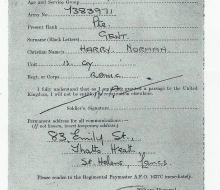 Age and Service Group
Army No. 7383971
Present Rank Pte.
Surname (Block Letters) GENT.
Christian Names HARRY NORMAN
Unit Coy
Regt. or Corps R.A.M.C.
I fully understand that if I am granted a passage to the United
Kingdom, I will not be entitled to
Soldier's Signature.
Permanent address for all communications:—
(If not known, insert temporary address)
83, Emily St.,
Thatto Heath
St. Helens, Lancs.
Please render to the Regimental Paymaster A.P.O. immediately